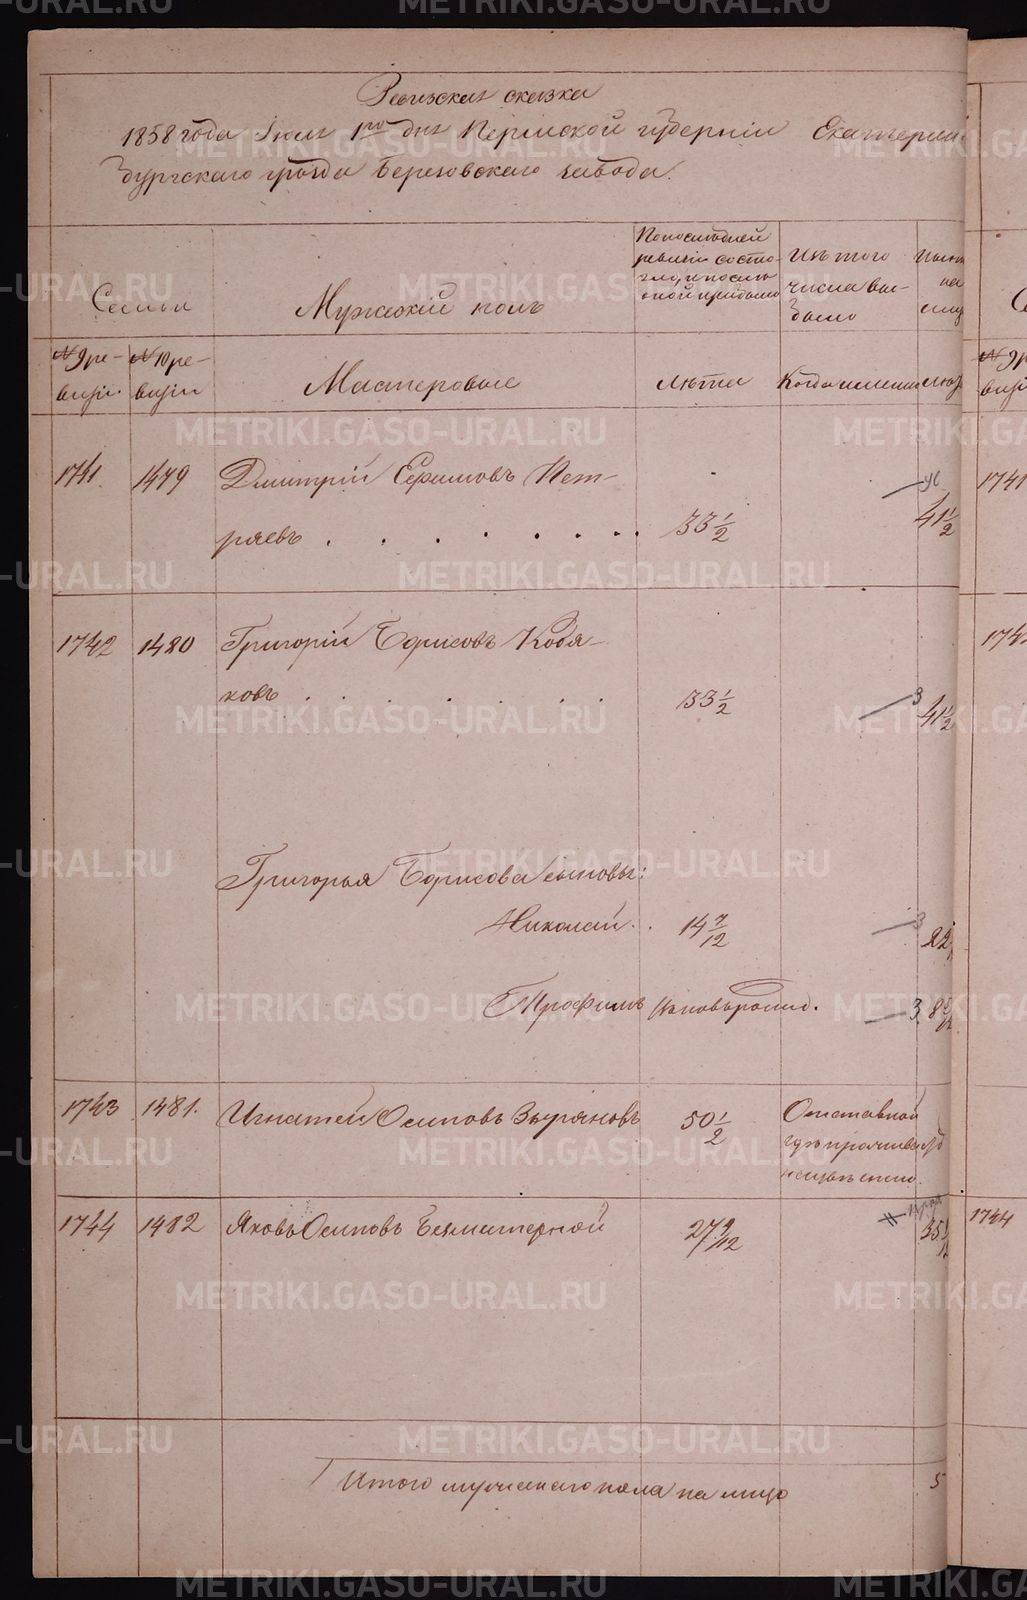 Ревизская сказка
1858 года Июля 1го дня Пермской губернiи Екатерин-
бургскаго уѣзда Березовскаго завода.
Семьи
Мужескiй полъ
По последней
ревизiи состо-
яло, и после
оной прибыло
Изъ того
числа вы-
было
№ 9 ре-
визiи.
№ 10 ре-
визiи
Мастеровые
Лѣта
Когда именно
1741. 1479 Дмитрiй Ефимовъ Пет-
ряевъ . . . . . . . . 33 1/2 41 1/2
1742 1480 Григорiй Борисовъ Кобя-
ковъ . . . . . . 33 1/2 3 41 1/2
Григорья Борисова сыновья:
Николай . . 14 7/12 3 22
Трофимъ новорожд. 3 8 5/12
1743 1481. Игнатей Осиповъ Зыряновъ 50 1/2 Отставной
гдѣ
неизвѣстно.
1744 1482 Яковъ Осиповъ Безматерной 27 9/12 35
Итого мужескаго пола на лицо 5
1741
1744
METRIKI.GASO-URAL.RU